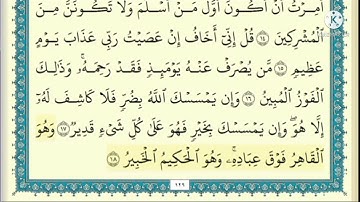 أُمِرْتُ أَنْ أَكُونَ أَوَّلَ مَنْ أَسْلَمَ وَلَا تَكُونَنَّ مِنَ
الْمُشْرِكِينَ ١٤ قُلْ إِنِّي أَخَافُ إِنْ عَصَيْتُ رَبِّي عَذَابَ يَوْمٍ
عَظِيمٍ ١٥ مَّن يُصْرَفْ عَنْهُ يَوْمَئِذٍ فَقَدْ رَحِمَهُۥ ۚ وَذَٰلِكَ
الْفَوْزُ الْمُبِينُ ١٦ وَإِن يَمْسَسْكَ اللَّهُ بِضُرٍّ فَلَا كَاشِفَ لَهُۥٓ
إِلَّا هُوَ ۖ وَإِن يَمْسَسْكَ بِخَيْرٍ فَهُوَ عَلَىٰ كُلِّ شَيْءٍ قَدِيرٌ ١٧ وَهُوَ
الْقَاهِرُ فَوْقَ عِبَادِهِۦ ۚ وَهُوَ الْحَكِيمُ الْخَبِيرُ ١٨
١٢٩